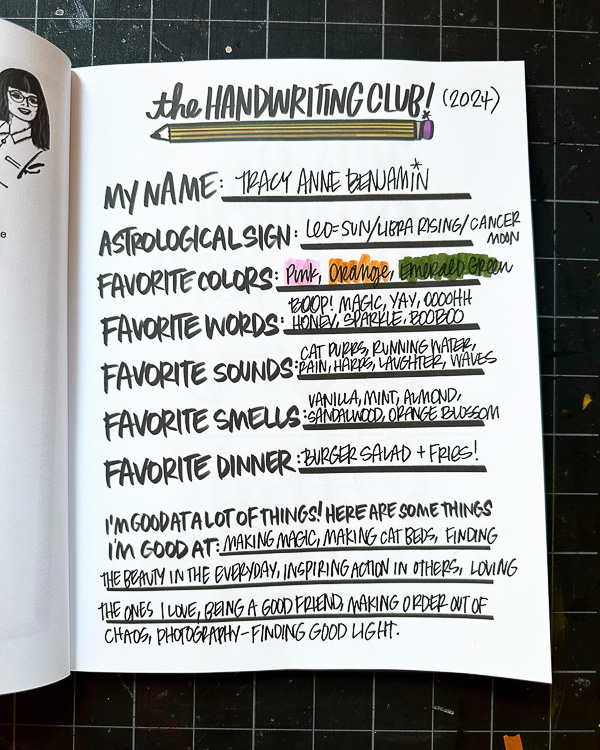 the HANDWRITING CLUB! (2024)
MY NAME: TRACY ANNE BENJAMIN
ASTROLOGICAL SIGN: LEO=SUN/LIBRA RISING/CANCER
MOON
FAVORITE COLORS: Pink, Orange, Emerald Green
BOOP! MAGIC, YAY, OOOOHH
FAVORITE WORDS: HONEY, SPARKLE, BOOBOO
CAT PURRS, RUNNING WATER,
FAVORITE SOUNDS: RAIN, HARPS, LAUGHTER, WAVES
VANILLA, MINT, ALMOND,
FAVORITE SMELLS: SANDALWOOD, ORANGE BLOSSOM
FAVORITE DINNER: BURGER SALAD + FRIES!
I'M GOOD AT A LOT OF THINGS! HERE ARE SOME THINGS
I'M GOOD AT: MAKING MAGIC, MAKING CAT BEDS, FINDING
THE BEAUTY IN THE EVERYDAY, INSPIRING ACTION IN OTHERS, LOVING
THE ONES I LOVE, BEING A GOOD FRIEND, MAKING ORDER OUT OF
CHAOS, PHOTOGRAPHY-FINDING GOOD LIGHT.